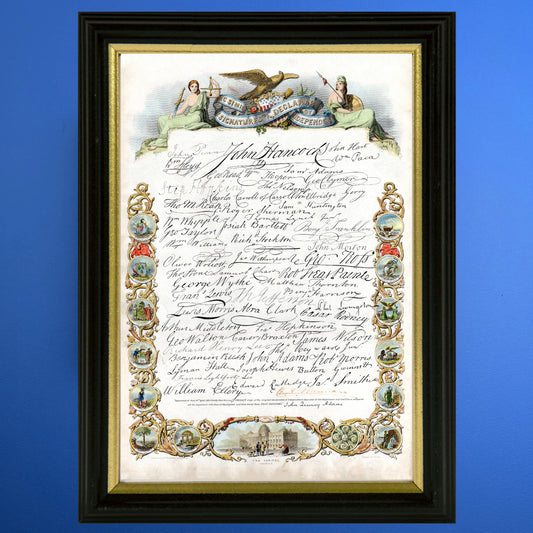 FAC SIMILE
SIGNATURES TO THE DECLARATION
INDEPENDENCE
John Penn John Hancock John Hart
Wm Floyd Wm Paca
Wm Hooper Saml Adams
Geo Clymer
Step Hopkins
Charles Carroll of Carrollton Elbridge Gerry
Tho M Kean Roger Sherman Saml Huntington
Wm Whipple Thomas Lynch Junr
Geo Taylor Josiah Bartlett Benj Franklin
Wm Williams Richd Stockton
John Morton
Oliver Wolcott Jno Witherspoon Geo Ross
Thos Stone Samuel Chase Robt Treat Paine
George Wythe Matthew Thornton
Frans Lewis Th Jefferson Benj Harrison
Lewis Morris Abra Clark Phil Livingston
Cæsar Rodney
Arthur Middleton Fras Hopkinson
Geo Walton Carter Braxton James Wilson
Richard Henry Lee Thos Heyward Junr
Benjamin Rush John Adams Robt Morris
Lyman Hall Joseph Hewes Button Gwinnett
Francis Lightfoot Lee
Edward Rutledge Jas Smith
William Ellery
John Quincy Adams
THE CAPITOL